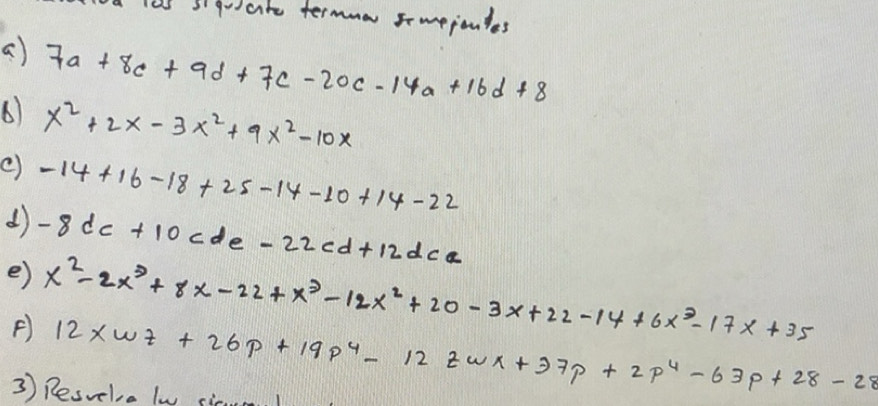 los siguiente terminos semejantes
a) 7a + 8c + 9d + 7c - 20c - 14a + 16d + 8
b) x² + 2x - 3x² + 9x² - 10x
c) -14 + 16 - 18 + 25 - 14 - 10 + 14 - 22
d) -8dc + 10cde - 22cd + 12dce
e) x² - 2x³ + 8x - 22 + x³ - 12x² + 20 - 3x + 22 - 14 + 6x³ - 17x + 35
F) 12xwz + 26p + 19p⁴ - 12zwx + 37p + 2p⁴ - 63p + 28 - 28
3) Resuelva